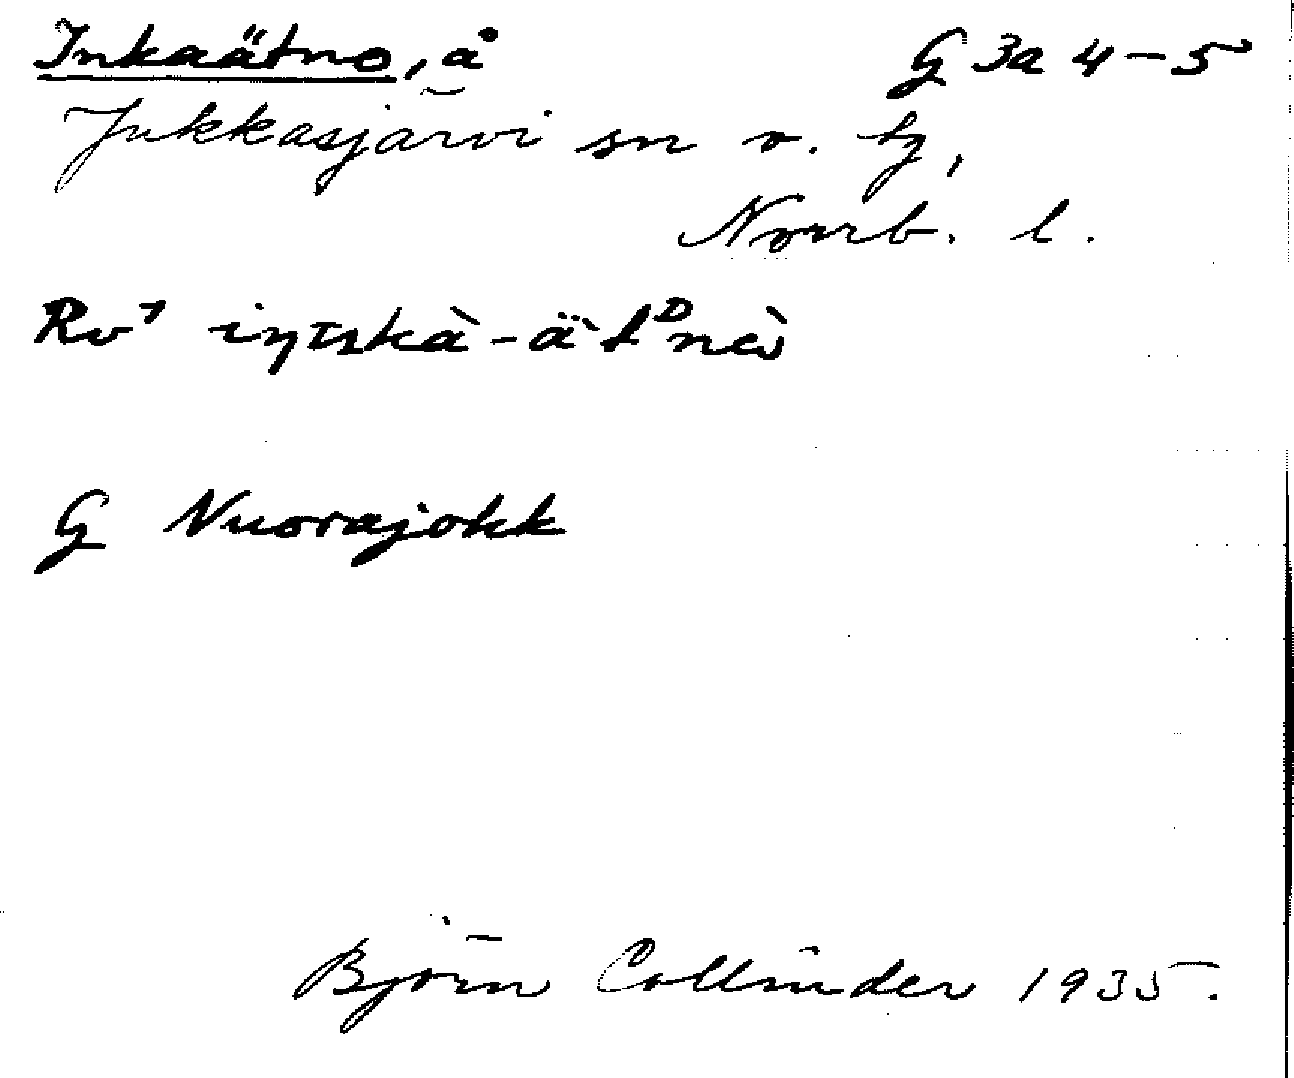 Inkaätno, å G 3a 4-5
Jukkasjärvi sn v. tg,
Norrb. l.
Rv
G Nuorajokk
Björn Collinder 1935.